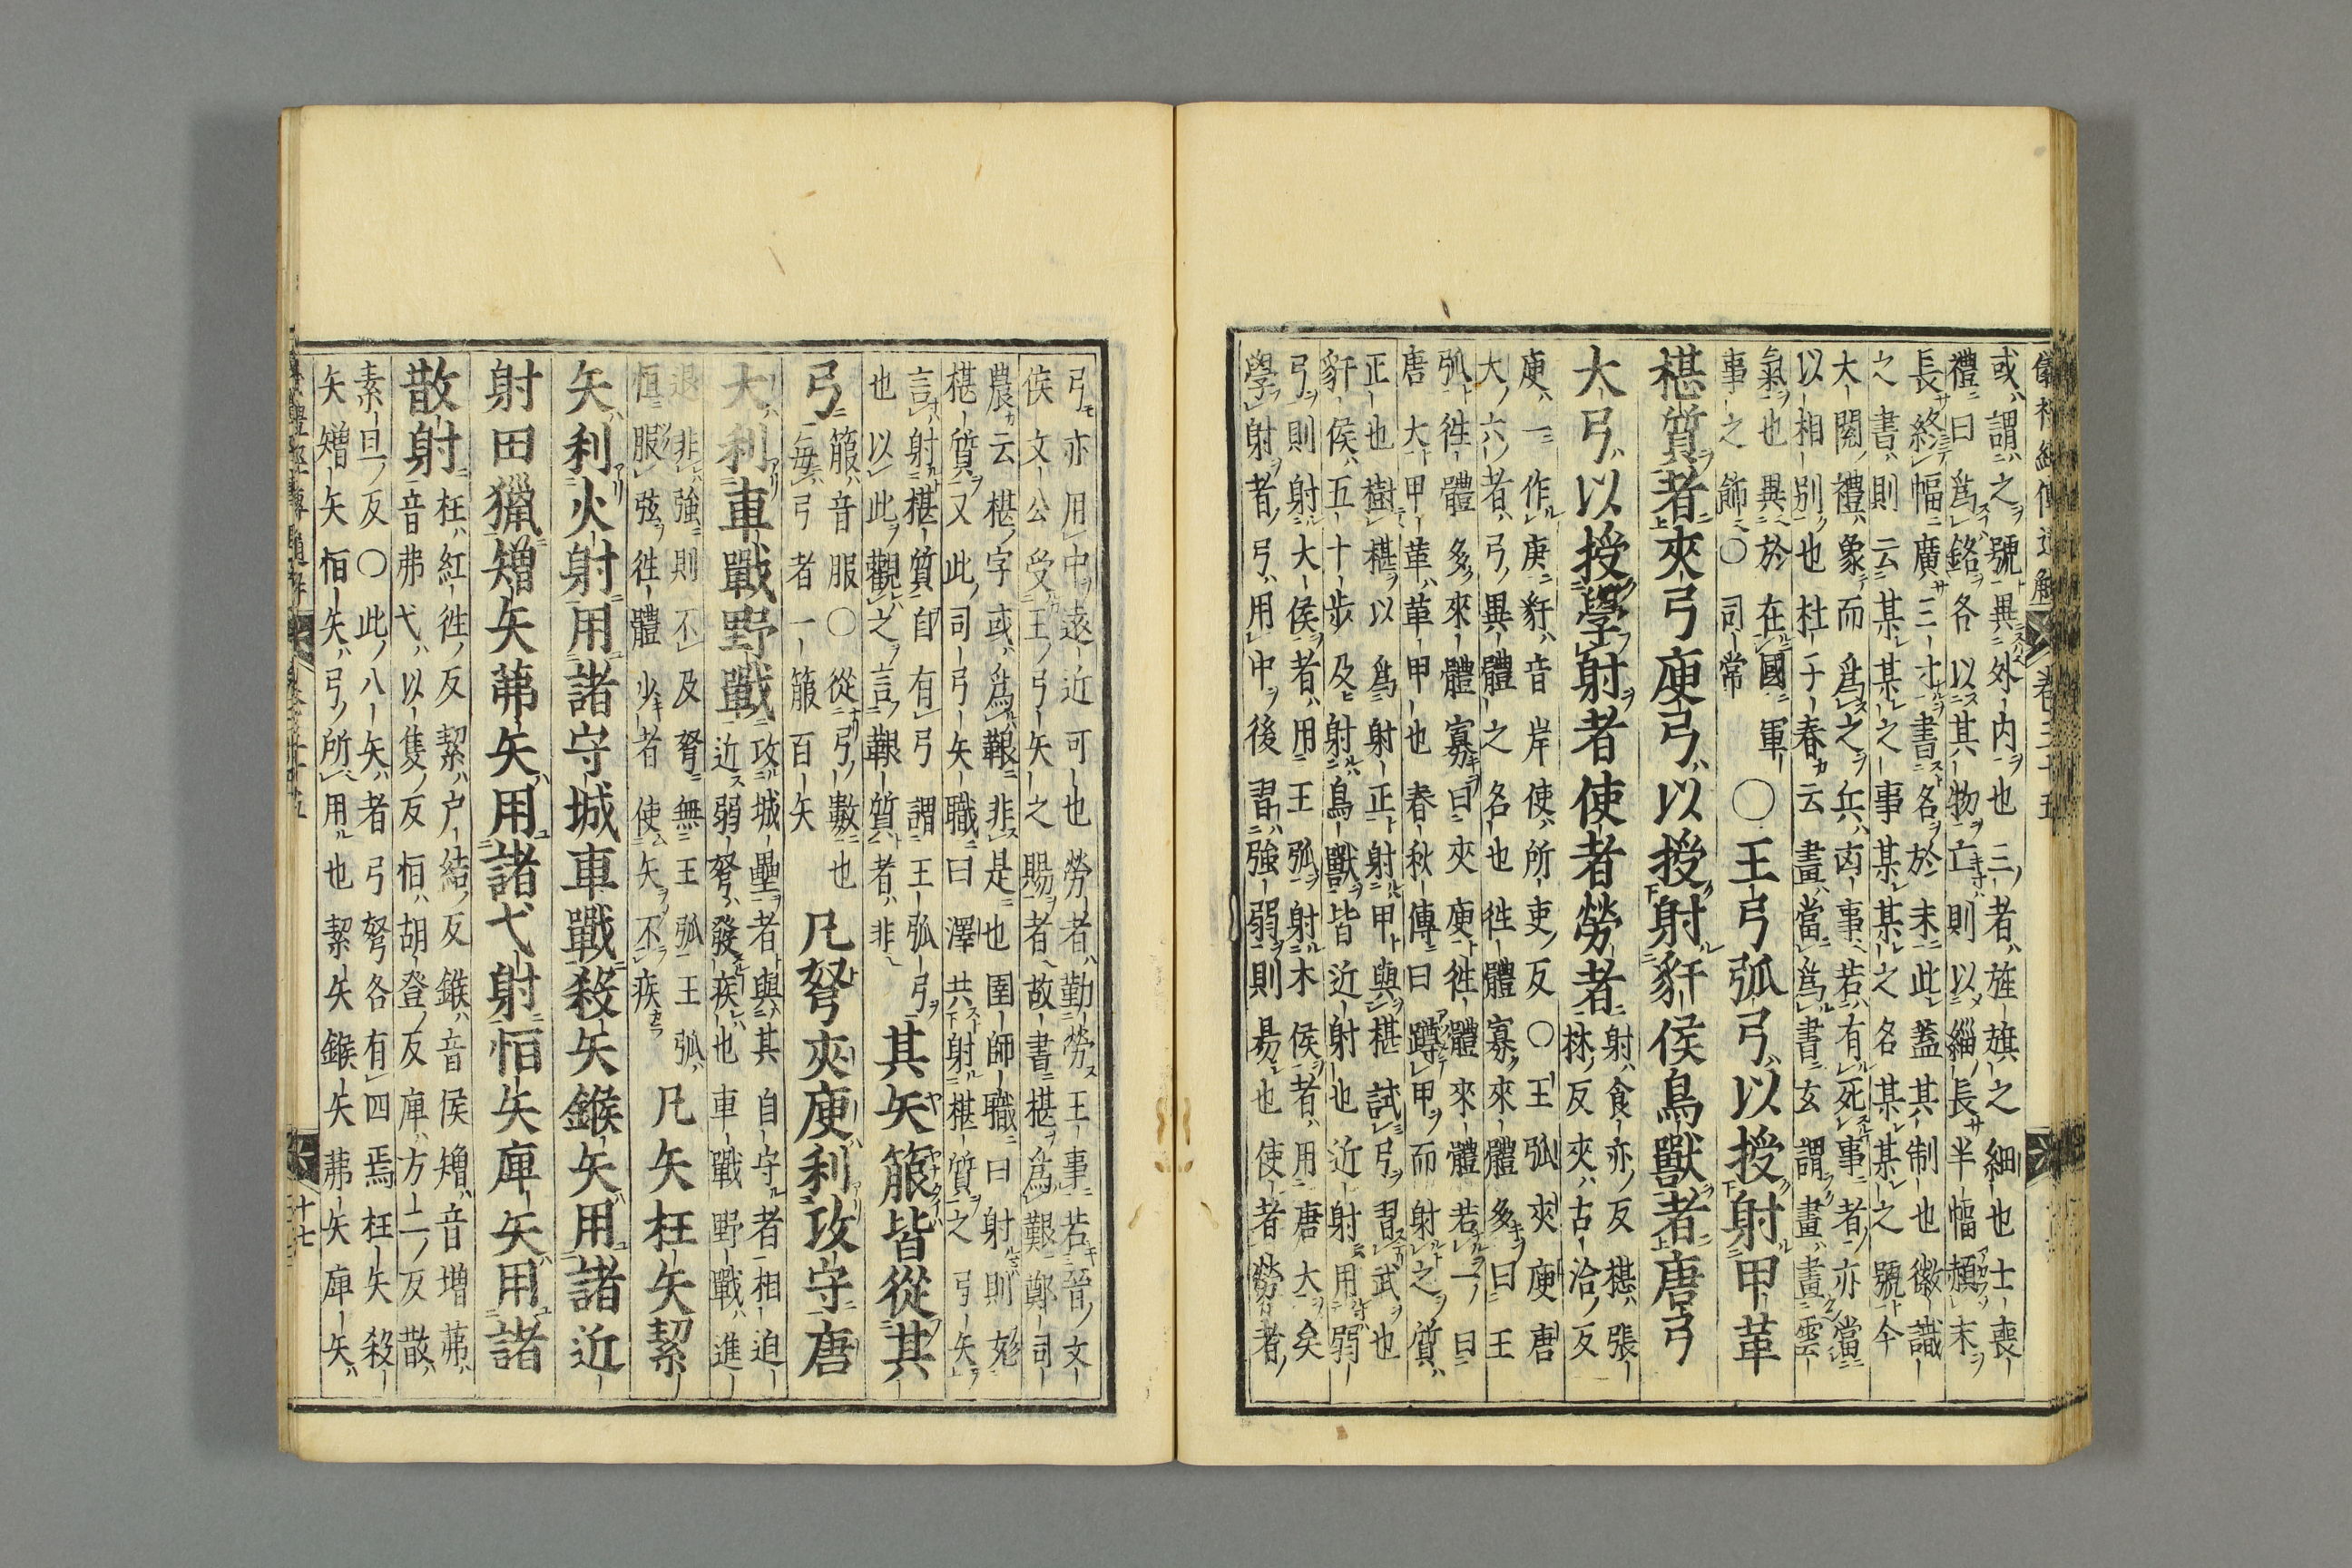 儀禮經傳通解 卷三十五
或謂之號異外内也三者旌旗之細也士喪
禮曰爲銘各以其物亡則以緇長半幅赬末
長終幅廣三寸書名於末此蓋其制也徽識
之書則云某某之事某某之名某某之號今
大閱禮象而爲之兵凶事若有死事者亦當
以相別也杜子春云畫當爲書玄謂畫畫雲
氣也異於在國軍
事之飾○司常
〇王弓弧弓以授射甲革
椹質者夾弓庾弓以授射豻侯鳥獸者唐弓
大弓以授學射者使者勞者
射食亦反椹張
林反夾古洽反
庾一作庚豻音岸使所吏反○王弧夾庾唐
大六者弓異體之名也往體寡來體多曰王
弧往體多來體寡曰夾庾往體來體若一曰
唐大甲革革甲也春秋傳曰蹲甲而射之質
正也樹椹以爲射正射甲與椹試弓習武也
豻侯五十步及射鳥獸皆近射也近射用弱
弓則射大侯者用王弧射木侯者用唐大矣
學射者弓用中後習強弱則易也使者勞者
弓亦用中遠近可也勞者勤勞王事若晉文
侯文公受王弓矢之賜者故書椹爲艱鄭司
農云椹字或爲艱非是也圉師職曰射則充
椹質又此司弓矢職曰澤共射椹質之弓矢
言射椹質自有弓謂王弧弓
也以此觀之言艱質者非
其矢箙皆從其
弓
箙音服○從弓數也
每弓者一箙百矢
凡弩夾庾利攻守唐
大利車戰野戰
攻城壘者與其自守者相迫
近弱弩發疾也車戰野戰進
退非強則不及弩無王弧王弧
恒服弦往體少者使矢不疾
凡矢枉矢絜
矢利火射用諸守城車戰殺矢鍭矢用諸近
射田獵矰矢茀矢用諸弋射恒矢庳矢用諸
散射
枉紅往反絜户結反鍭音侯矰音增茀
音弗弋以隻反恒胡登反庳方二反散
素旦反○此八矢者弓弩各有四焉枉矢殺
矢矰矢恒矢弓所用也絜矢鍭矢茀矢庳矢
十七